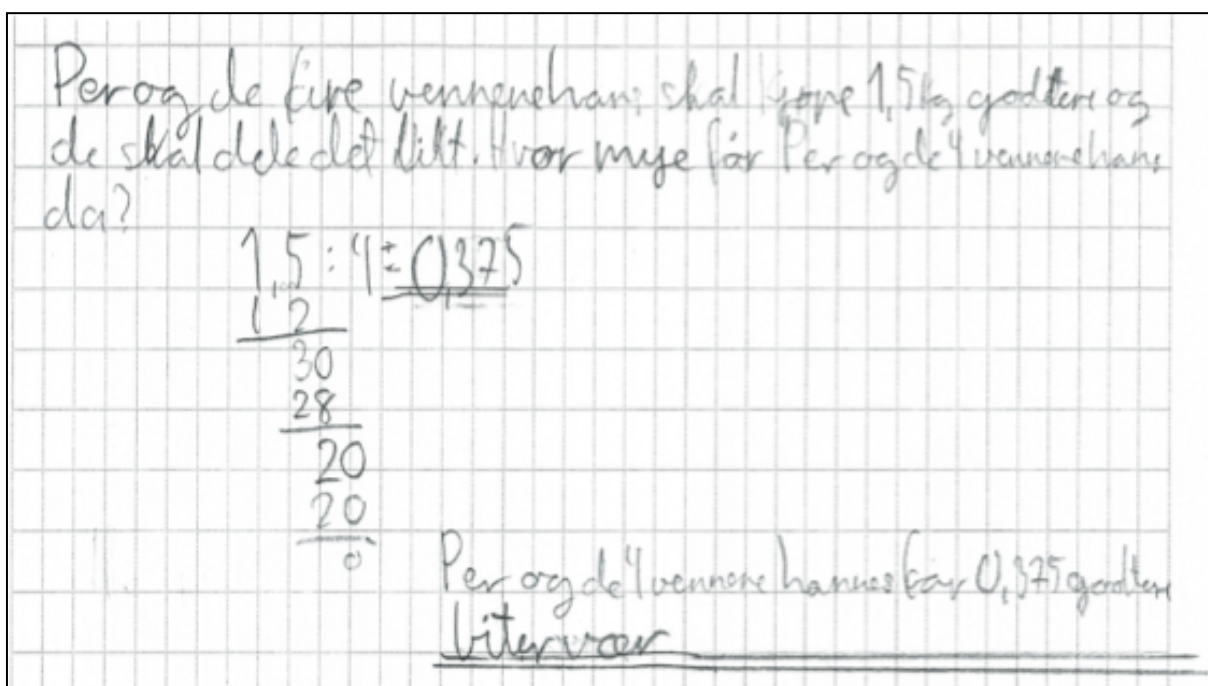 Per og de fire vennene hans skal kjøpe 1,5 kg godteri og
de skal dele det likt. Hvor mye får Per og de 4 vennene hans
da?
1,5 : 4 = 0,375
1 2
30
28
20
20
0
Per og de 4 vennene hannes får 0,375 godteri
biter vær